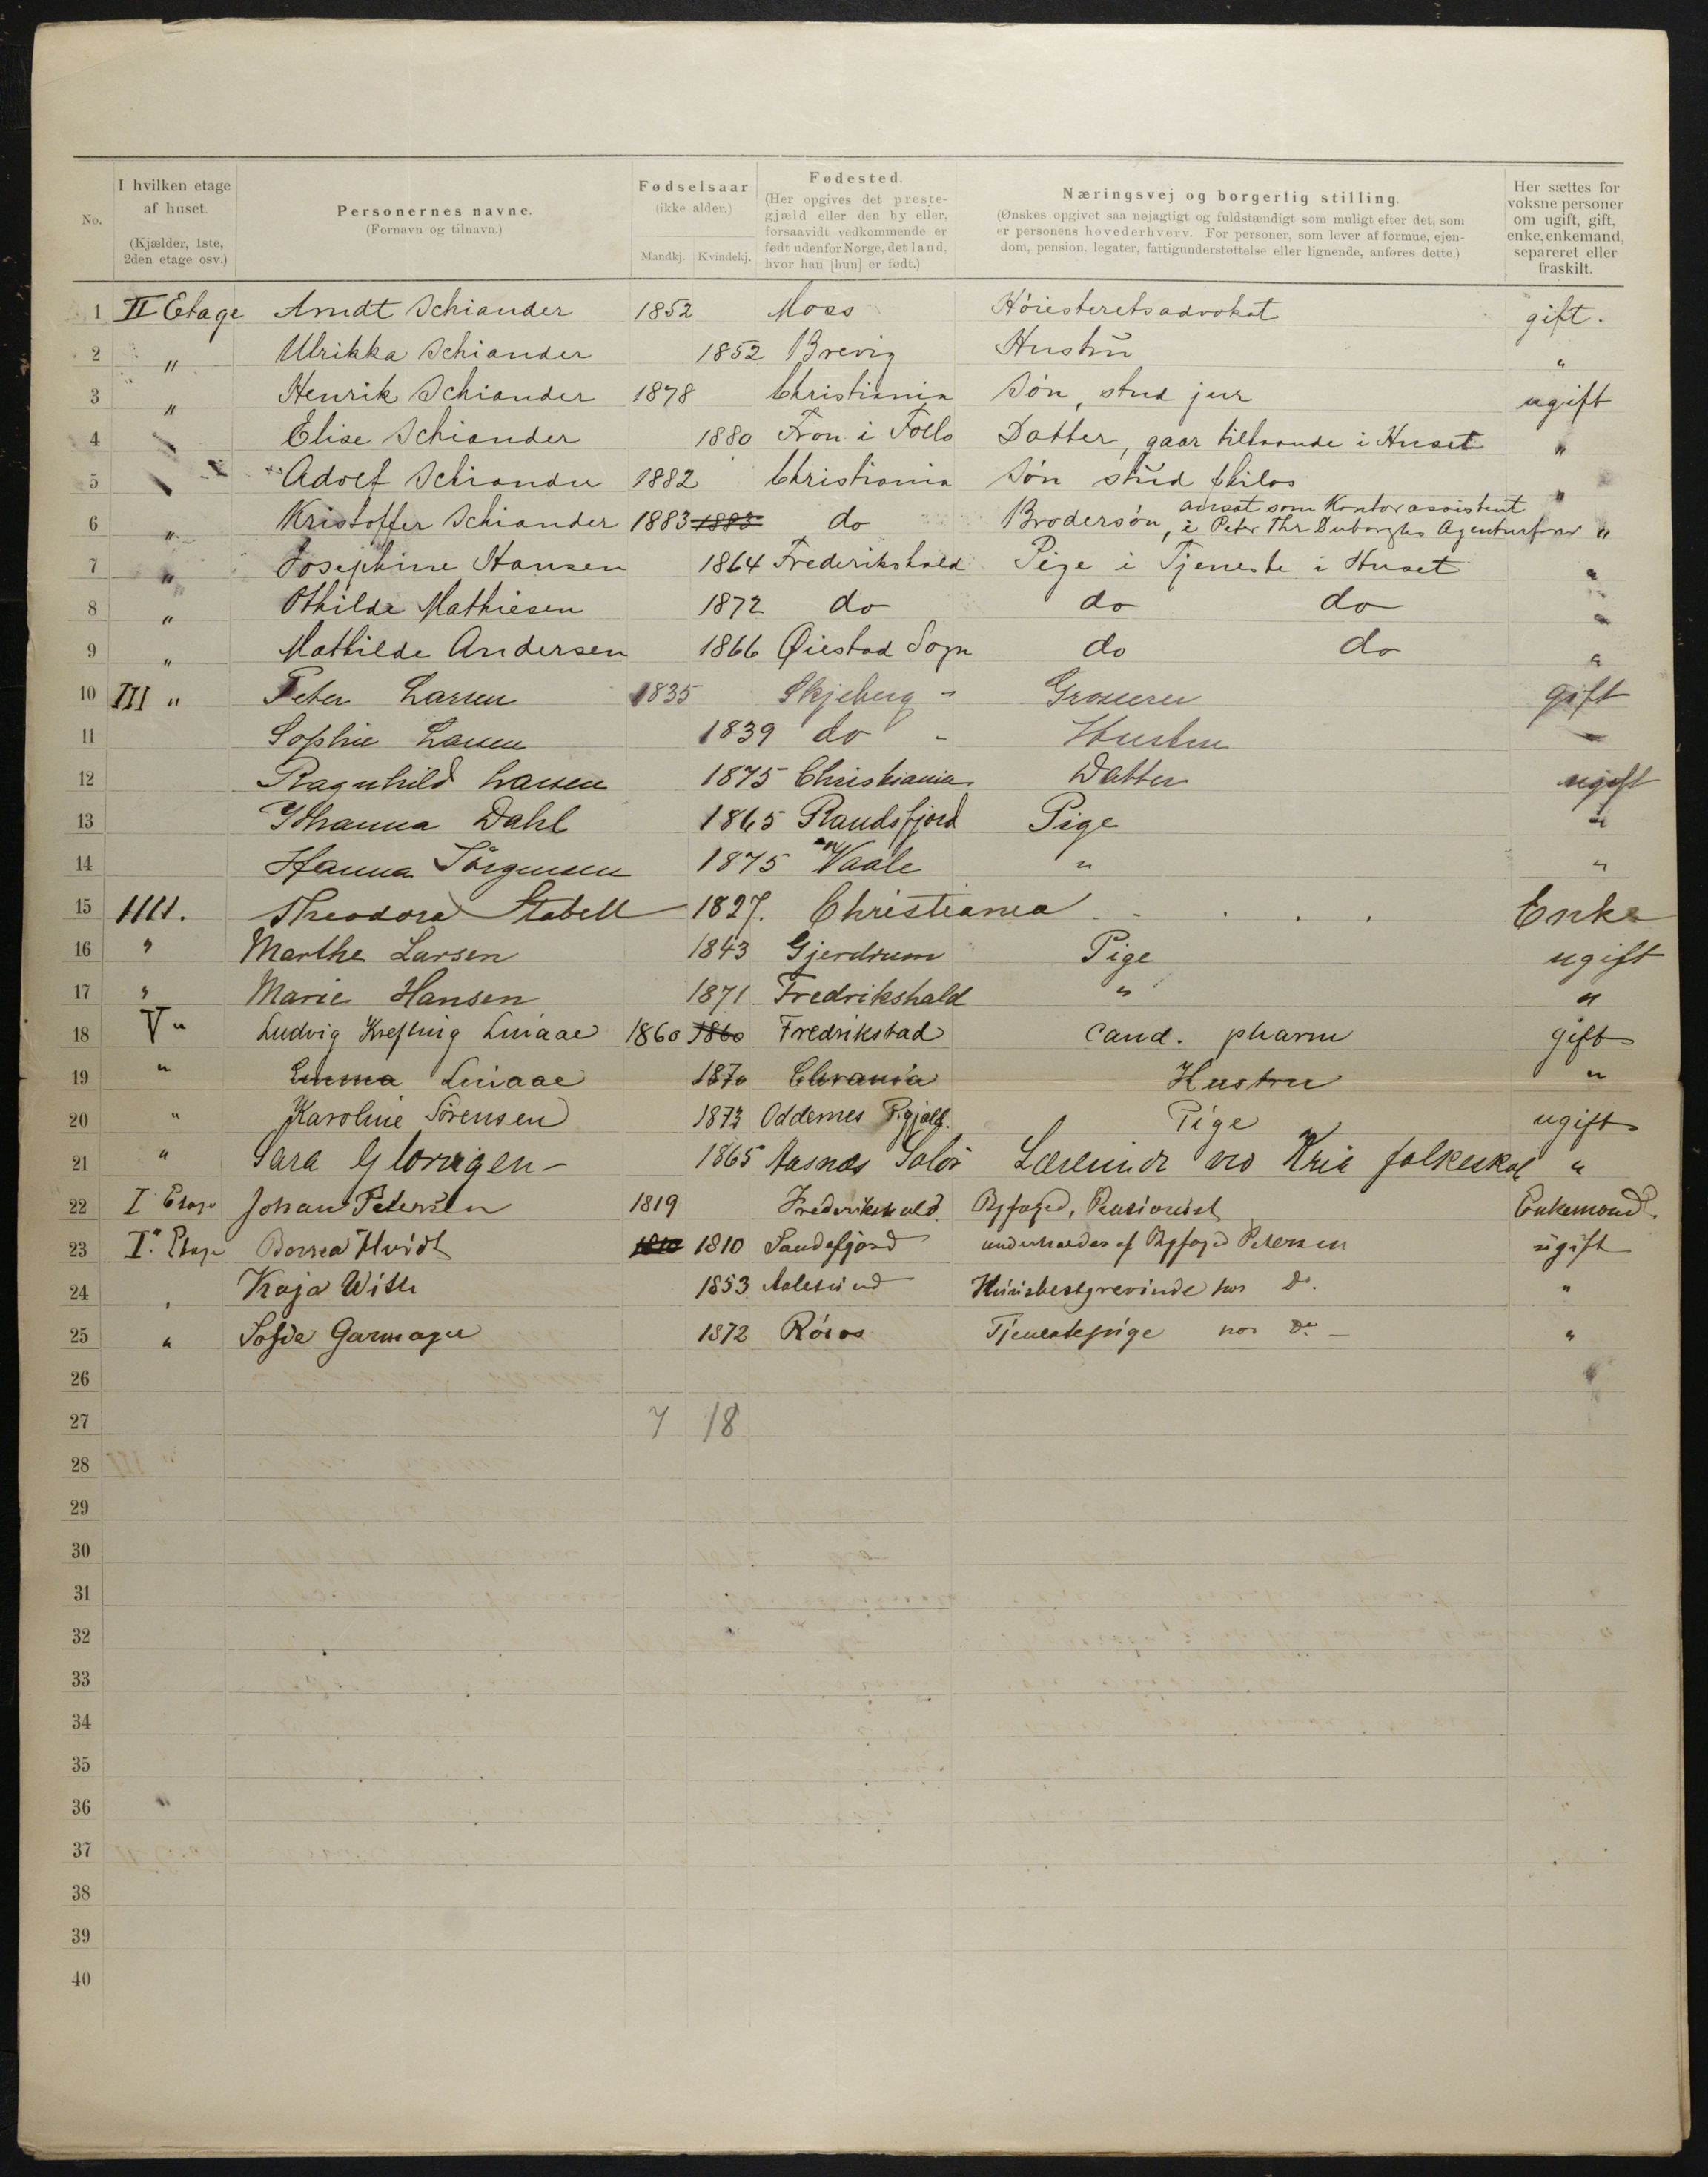 No.
I hvilken etage af huset.
(Kjælder, 1ste, 2den etage osv.)
Personernes navne.
(Fornavn og tilnavn.)
Fødselsaar
(ikke alder.)
Mandkj. Kvindekj.
Fødested.
(Her opgives det prestegjæld eller den by eller, forsaavidt vedkommende er født udenfor Norge, det land, hvor han [hun] er født.)
Næringsvej og borgerlig stilling.
(Ønskes opgivet saa nøjagtigt og fuldstændigt som muligt efter det, som er personens hovederhverv. For personer, som lever af formue, ejendom, pension, legater, fattigunderstøttelse eller lignende, anføres dette.)
Her sættes for voksne personer om ugift, gift, enke, enkemand, separeret eller fraskilt.
1 II Etage Arndt Schiander 1852 Moss Høiesteretsadvokat gift.
2 " Ulrikka Schiander 1852 Brevig Hustru "
3 " Henrik Schiander 1878 Christiania Søn, stud jur ugift
4 " Elise Schiander 1880 Fron i Follo Datter, gaar tilhaande i Huset "
5 " Adolf Schiander 1882 Christiania Søn stud philos "
6 " Kristoffer Schiander 1883 1883 do Brodersøn, ansat som Kontorassistent i Peter Thr Duborghs "
7 " Josephine Hansen 1864 Frederikshald Pige i Tjeneste i Huset "
8 " Othilde Mathiesen 1872 do do do "
9 " Mathilde Andersen 1866 Øiestad Sogn do do "
10 III " Peter Larsen 1835 Skjeberg " Grosserer gift
11 Sophie Larsen 1839 do " Hustru "
12 Ragnhild Larsen 1875 Christiania Datter ugift
13 Johanna Dahl 1865 Randsfjord Pige "
14 Hanna Jörgensen 1875 Vaale " "
15 IIII. Theodora Stabell 1827. Christiania Enke
16 " Marthe Larsen 1843 Gjerdrum Pige ugift
17 " Marie Hansen 1871 Fredrikshald " "
18 V " Ludvig Krefting Liniaae 1860 1860 Fredrikstad cand. pharm gift
19 " Emma Liniaae 1870 Chrania Hustru "
20 " Karoline Sørensen 1873 Oddernes Pgjæld. Pige ugift
21 " Sara Glorvigen - 1865 Aasnæs Solør Lærerinde ved Kria folkeskol "
22 I Etage Johan Petersen 1819 Frederikshald Byfoged, Pensionist Enkemand.
23 I. Etage Hvidt 1810 1810 Sandefjord underholdes af Byfoged Petersen ugift
24 " Kaja With 1853 Aalesund Huusbestyrerinde hos Do. "
25 " Sofie Garmager 1872 Røros Tjenestepige hos Do - "
26
27 7 18
28
29
30
31
32
33
34
35
36 "
37
38
39
40